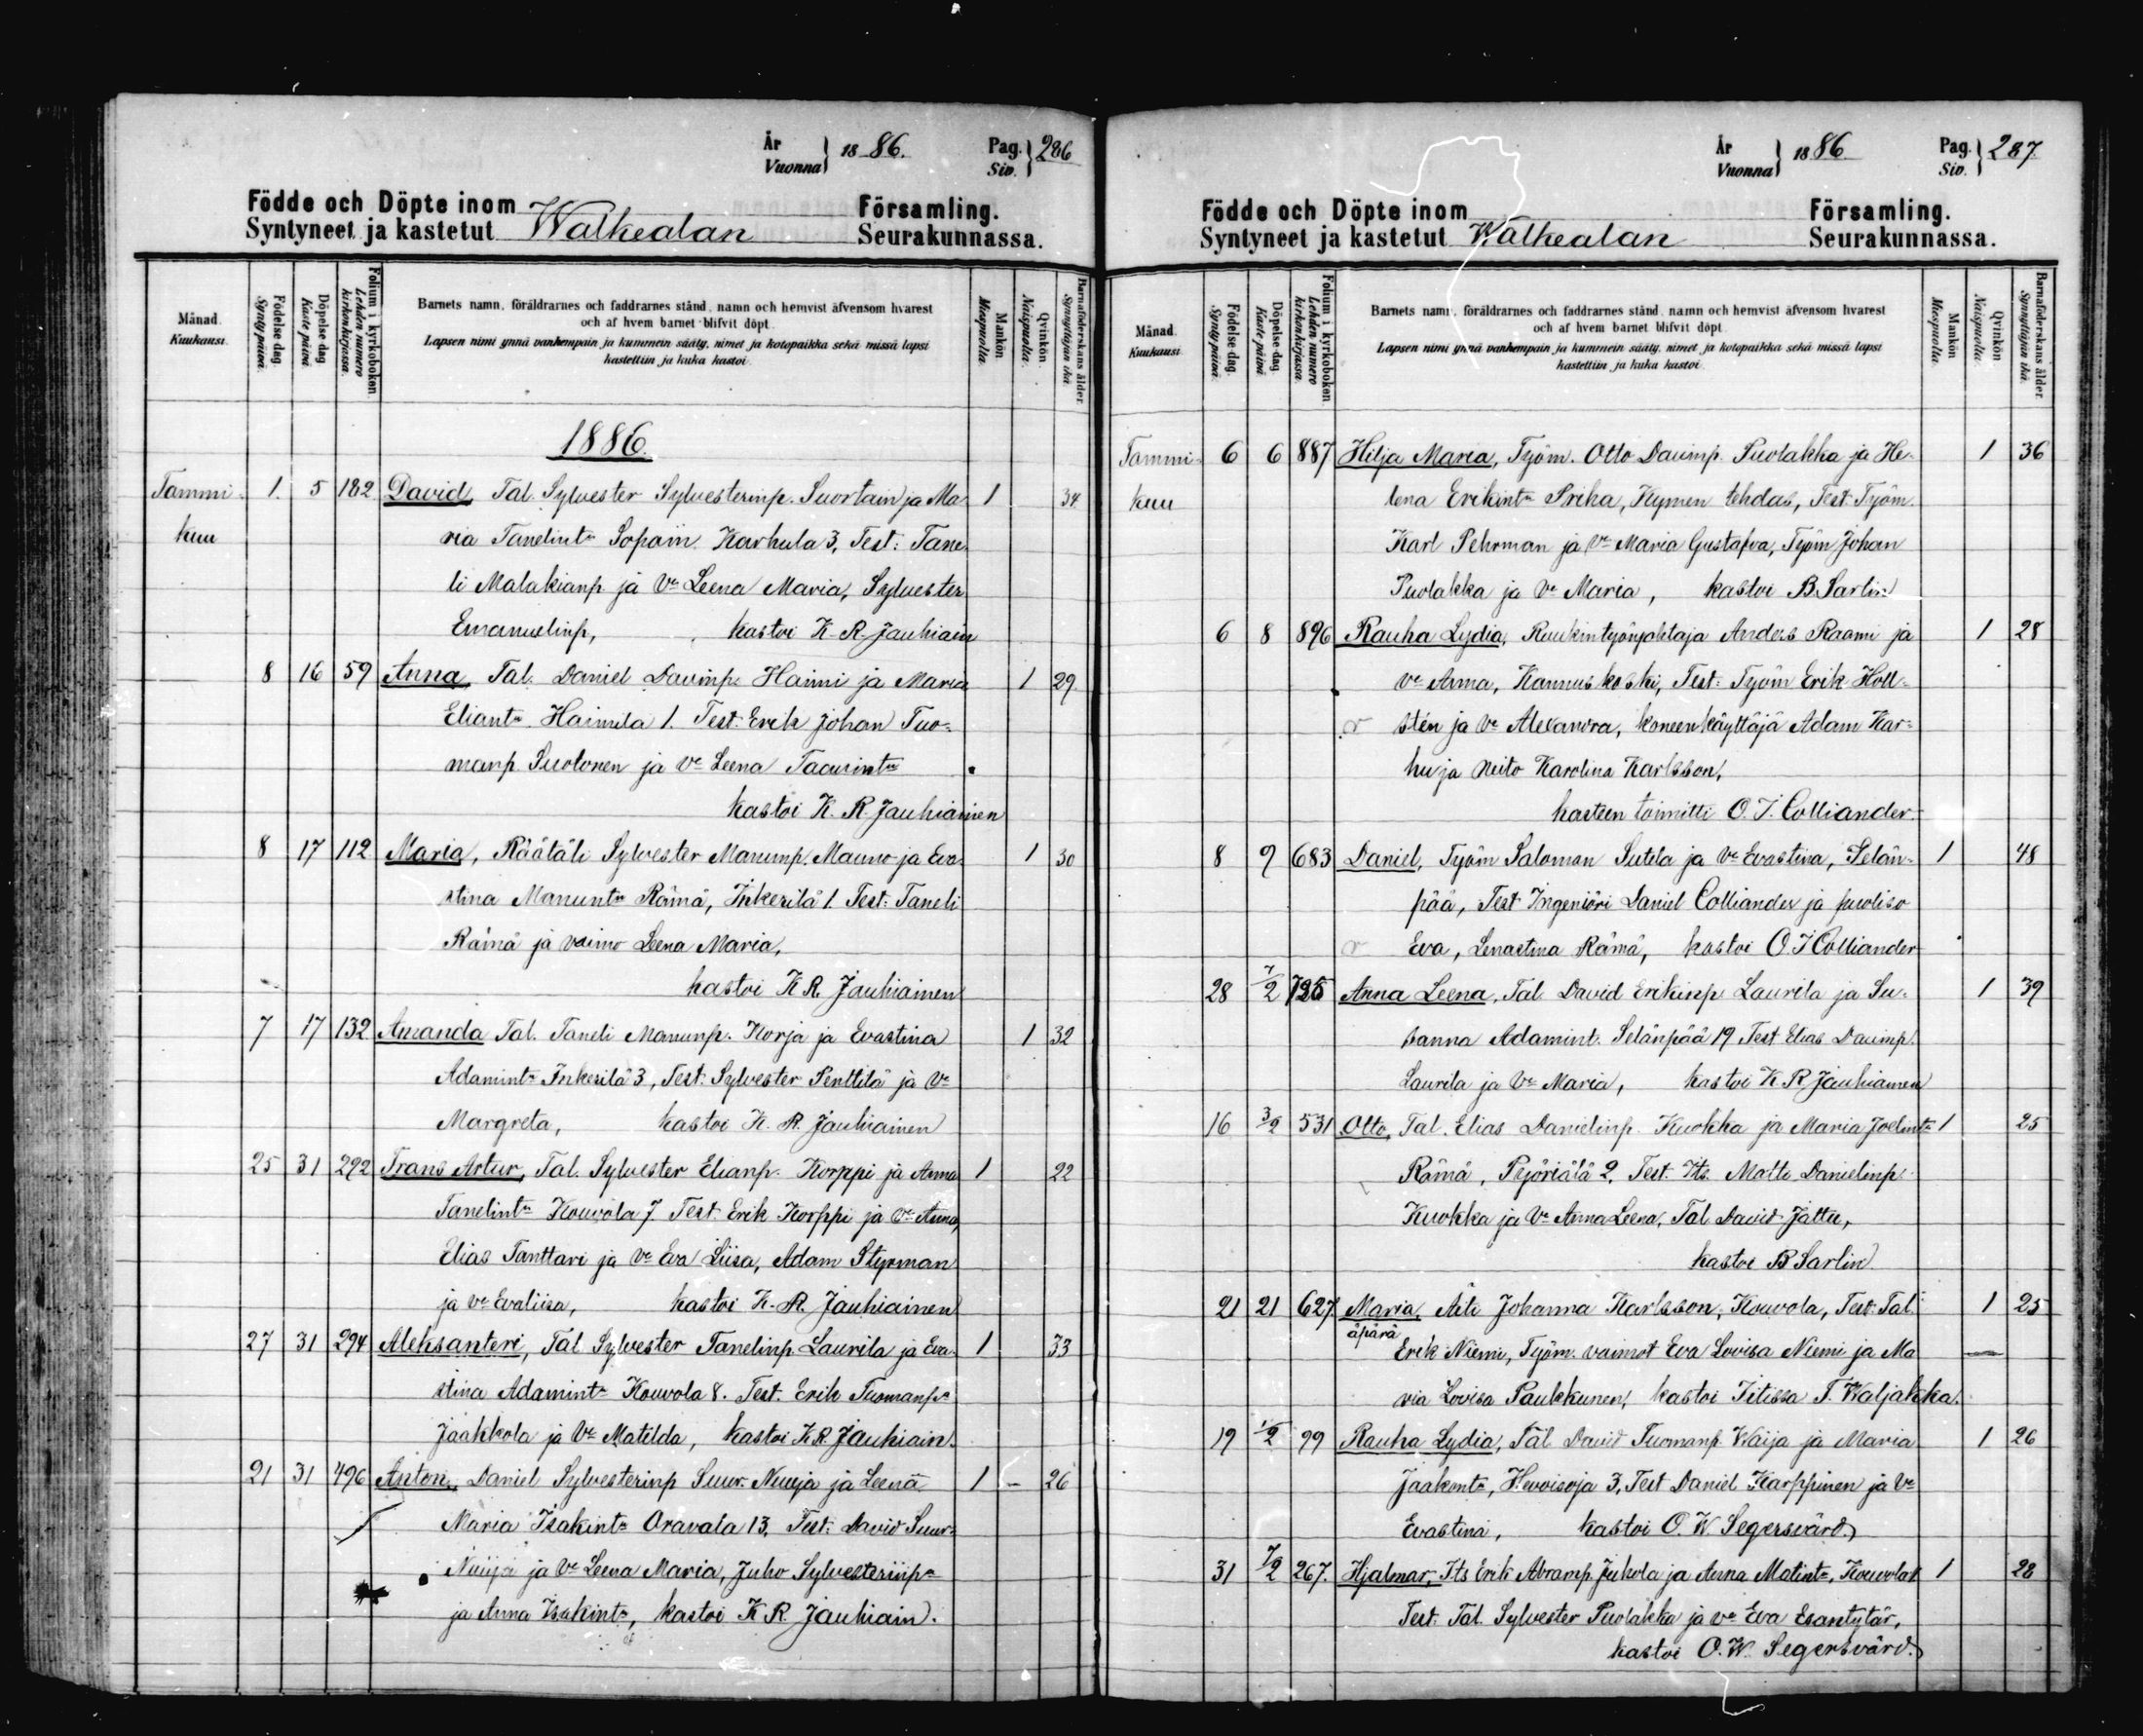 År
Vuonna } 1886. Pag.
Siv. } 286
Födde och Döpte inom Församling.
Syntyneet ja kastetut Walkealan Seurakunnassa.
Månad.
Kuukausi.
Födelse dag.
Synty päivä.
Döpelse dag
Kaste päivä
Folium i kyrkoboken
Lehden numero
kirkonkirjassa.
Barnets namn, föräldrarnes och faddrarnes stånd, namn och hemvist äfvensom hvarest
och af hvem barnet blifvit döpt.
Lapsen nimi ynnä vanhempain ja kummein sääty, nimet ja kotopaikka sekä missä lapsi
kastettiin ja kuka kastoi.
Mankön.
Miespuolta.
Qvinkön.
Naispuolta.
Barnaföderskans ålder.
Synnyttäjän ikä.
1886.
Tammi- 1. 5 182 David, Tal. Sylvester Sylvesterinp. Suortain ja Ma- 1 34
kuu ria Tanelint:r Sopain Karhula 3, Test: Tane-
li Malakianp. ja V:o Leena Maria, Sylvester
Emanuelinp, kastoi K. R. Jauhiain
8 16 59 Anna, Tal. Daniel Davinp. Haimi ja Maria 1 29
Eliant:r Haimila 1. Test. Erik Johan Tuo-
manp. Suolonen ja V:o Leena Taavint:r
kastoi K. R. Jauhiainen
8 17 112 Maria, Räätäli Sylvester Manunp. Mauno ja Eva- 1 30
stina Manunt:r Rämä, Inkerilä 1. Test: Taneli
Rämä ja vaimo Leena Maria,
kastoi K R. Jauhiainen
7 17 132 Amanda Tal. Taneli Manunp. Korja ja Evastina 1 32
Adamint:r Inkerilä 3, Test: Sylvester Penttilä ja V:o
Margreta, kastoi K. R. Jauhiainen
25 31 292 Frans Artur, Tal. Sylvester Elianp. Korppi ja Anna 1 22
Tanelint:r Kouvola 7. Test. Erik Korppi ja V:o Anna,
Elias Tanttari ja V:o Eva Liisa, Adam Styrman
ja V:o Evaliisa, kastoi K. R. Jauhiainen
27 31 294 Aleksanteri, Tal Sylvester Tanelinp. Laurila ja Eva- 1 33
stina Adamint:r Kouvola 8. Test. Erik Tuomanp:a
Jaakkola ja V:o Matilda, kastoi K R. Jauhiain.
21 31 496 Anton, Daniel Sylvesterinp Suur-Nuuja ja Leena 1 - 26
Maria Isakint:r Oravala 13, Test: David Suur-
Nuuja ja V:o Leena Maria, Juho Sylvesterinp:a
ja Anna Isakint:r, kastoi K R. Jauhiain.
År
Vuonna } 1886 Pag.
Siv. } 287
Födde och Döpte inom Församling.
Syntyneet ja kastetut Walkealan Seurakunnassa.
Månad.
Kuukausi
Födelse dag.
Synty päivä.
Döpelse dag
Kaste päivä
Folium i kyrkoboken
Lehden numero
kirkonkirjassa.
Barnets namn, föräldrarnes och faddrarnes stånd, namn och hemvist äfvensom hvarest
och af hvem barnet blifvit döpt.
Lapsen nimi ynnä vanhempain ja kummein sääty, nimet ja kotopaikka sekä missä lapsi
kastettiin ja kuka kastoi.
Mankön
Miespuolta.
Qvinkön
Naispuolta.
Barnaföderskans ålder.
Synnyttäjän ikä.
Tammi- 6 6 887 Hilja Maria, Työm. Otto Davinp. Puolakka ja He- 1 36
kuu lena Erikint:r Priha, Kymen tehdas, Test Työm.
Karl Pehrman ja V:o Maria Gustafva, Työm Johan
Puolakka ja V:o Maria, kastoi B. Sarlin
6 8 896 Rauha Lydia, Ruukintyönjohtaja Anders Raami ja 1 28
V:o Anna, Kannuskoski, Test: Työm Erik Holl-
stén ja V:o Alexandra, koneenkäyttäjä Adam Kar-
hu ja Neito Karolina Karlsson,
kasteen toimitti O. I. Colliander.
8 9 683 Daniel, Työm Saloman Sutela ja V:o Evastina, Selän- 1 48
pää, Test Ingeniöri Daniel Colliander ja puoliso
Eva, Lenastina Rämä, kastoi O. I Colliander
28 7/2 725 Anna Leena, Tal. David Erikinp. Laurila ja Su- 1 39
sanna Adamint. Selänpää 19 Test Elias Davinp.
Laurila ja V:o Maria, kastoi K R Jauhiainen
16 3/2 531 Otto, Tal. Elias Danielinp. Kuokka ja Maria Joelint:r 1 25
Rämä, Pyöriälä 2, Test: Its. Matti Danielinp.
Kuokka ja V:o Anna Leena, Tal David Jattu,
kastoi B Sarlin
21 21 627. Maria, Äiti Johanna Karlsson, Kouvola, Test. Tal. 1 25
äpärä
Erik Niemi, Työm. vaimot Eva Lovisa Niemi ja Ma-
ria Lovisa Paukkunen, kastoi Iitissa T. Waljakka.
19 1/2 99 Rauha Lydia, Tal. David Tuomanp Waija ja Maria 1 26
Jaakont:r, Hevoisoja 3, Test Daniel Karppinen ja V:o
Evastina, kastoi O. W. Segersvärd.
31 7/2 267. Hjalmar, Its Erik Abramp. Jukola ja Anna Matint:r, Kouvola 1 28
Test: Tal. Sylvester Puolakka ja V:o Eva Esantytär,
kastoi O. W. Segersvärd.